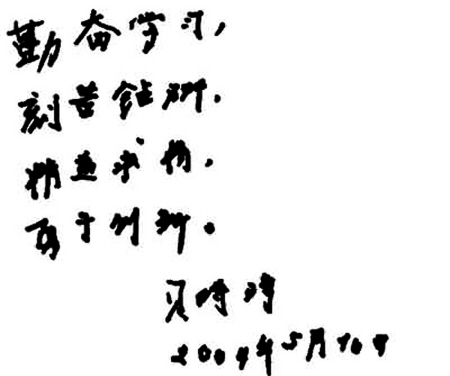 勤奋学习,
刻苦钻研.
精益求精,
勇于创新。
贝时璋
2004年5月10日